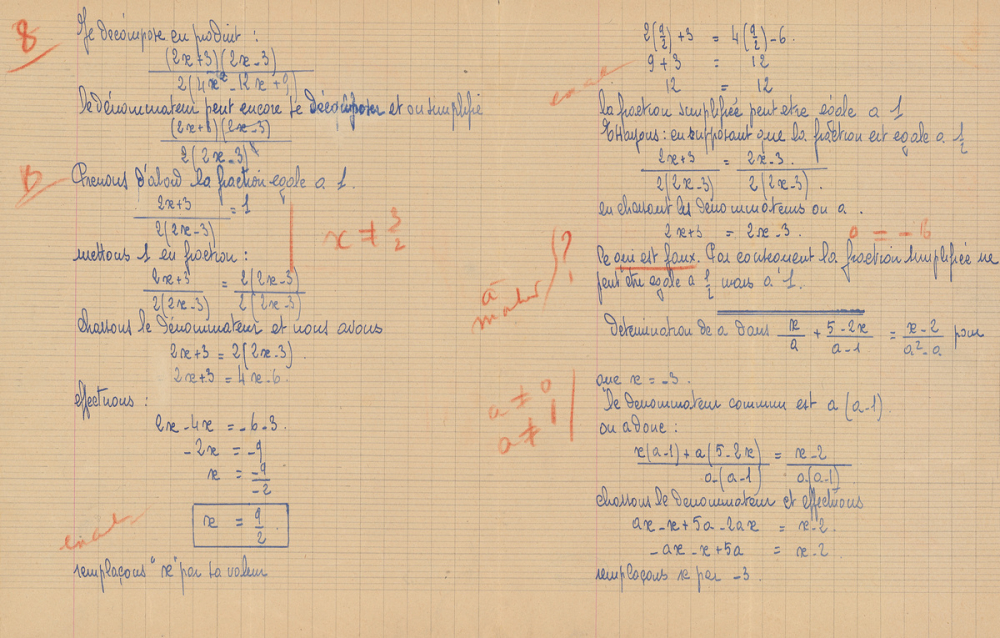 8
Je décompose en produit :
(2x+3)(2x-3)
2(4x²-12x+9)
le dénominateur peut encore se décomposer et on simplifie
(2x+3)(2x-3)
2(2x-3)²
b
Prenons d'abord la fraction egale a 1.
2x+3 / 2(2x-3) = 1
x ≠ 3/2
mettons 1 en fraction :
2x+3 / 2(2x-3) = 2(2x-3) / 2(2x-3)
chassons le dénominateur et nous avons
2x+3 = 2(2x-3).
2x+3 = 4x-6.
effectuons :
2x-4x = -6-3.
-2x = -9
x = -9/-2
x = 9/2
exact
remplaçons "x" par sa valeur
2(9/2)+3 = 4(9/2)-6.
9+3 = 12
12 = 12
exact
la fraction simplifiée peut etre egale a 1
Essayons : en supposant que la fraction est egale a 1/2
2x+3 / 2(2x-3) = 2x-3 / 2(2x-3).
en chassant les dénominateurs on a.
2x+3 = 2x-3.
0 = -6
Ce qui est faux. Par consequent la fraction simplifiée ne
peut être egale a 1/2 mais a 1.
à
?
Determination de a dans x/a + 5-2x/a-1 = x-2/a²-a pour
que x = -3.
a ≠ 0
a ≠ 1
Le denominateur commun est a(a-1)
on a donc :
x(a-1)+a(5-2x) / a(a-1) = x-2 / a(a-1)
chassons le denominateur et effectuons
ax-x+5a-2ax = x-2.
-ax-x+5a = x-2
remplaçons x par -3.